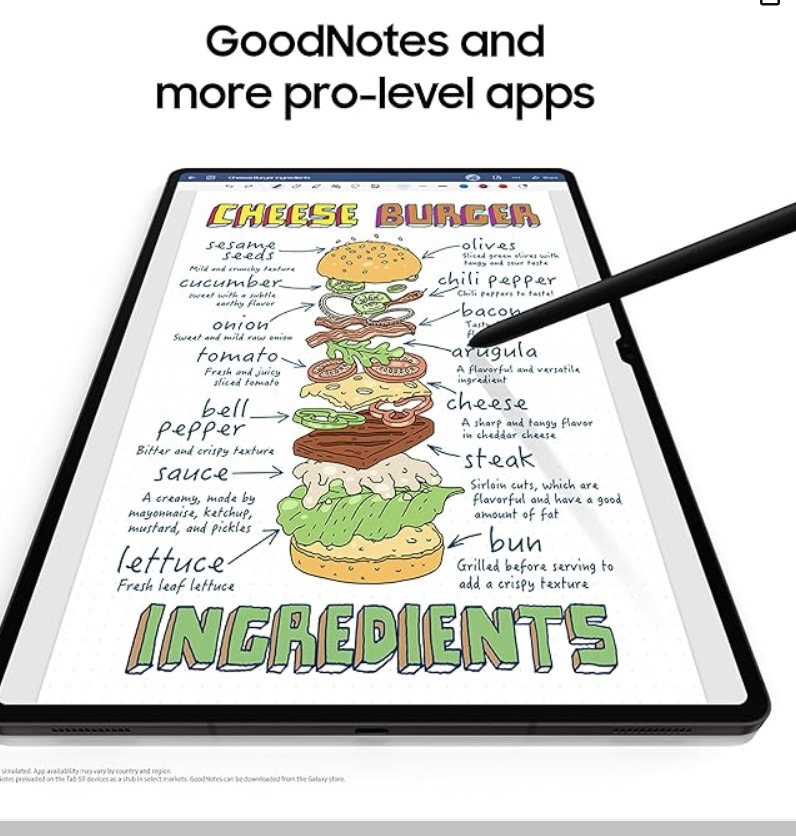 GoodNotes and
more pro-level apps
Cheese Burger Ingredients
Share
CHEESE BURGER
sesame
seeds
Mild and crunchy texture
cucumber
sweet with a subtle
earthy flavor
onion
Sweet and mild raw onion
tomato
Fresh and juicy
sliced tomato
bell
pepper
Bitter and crispy texture
sauce
A creamy, made by
mayonnaise, ketchup,
mustard, and pickles
lettuce
Fresh leaf lettuce
olives
Sliced green olives with
tangy and sour taste
chili pepper
Chili peppers to taste!
bacon
arugula
A flavorful and versatile
ingredient
cheese
A sharp and tangy flavor
in cheddar cheese
steak
Sirloin cuts, which are
flavorful and have a good
amount of fat
bun
Grilled before serving to
add a crispy texture
INGREDIENTS
simulated. App availability may vary by country and region.
Notes preloaded on the Tab S9 devices as a stub in select markets. GoodNotes can be downloaded from the Galaxy store.